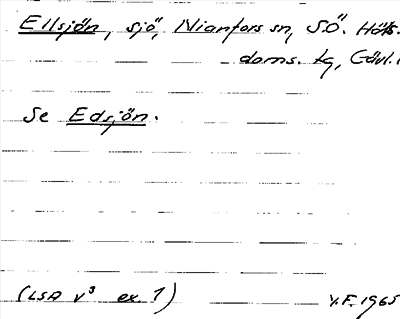 Ellsjön, sjö, Nianfors sn, SÖ. Häls.
doms. tg, Gävl.l
Se Edsjön.
(LSA v³ ex. 1) V.F. 1965